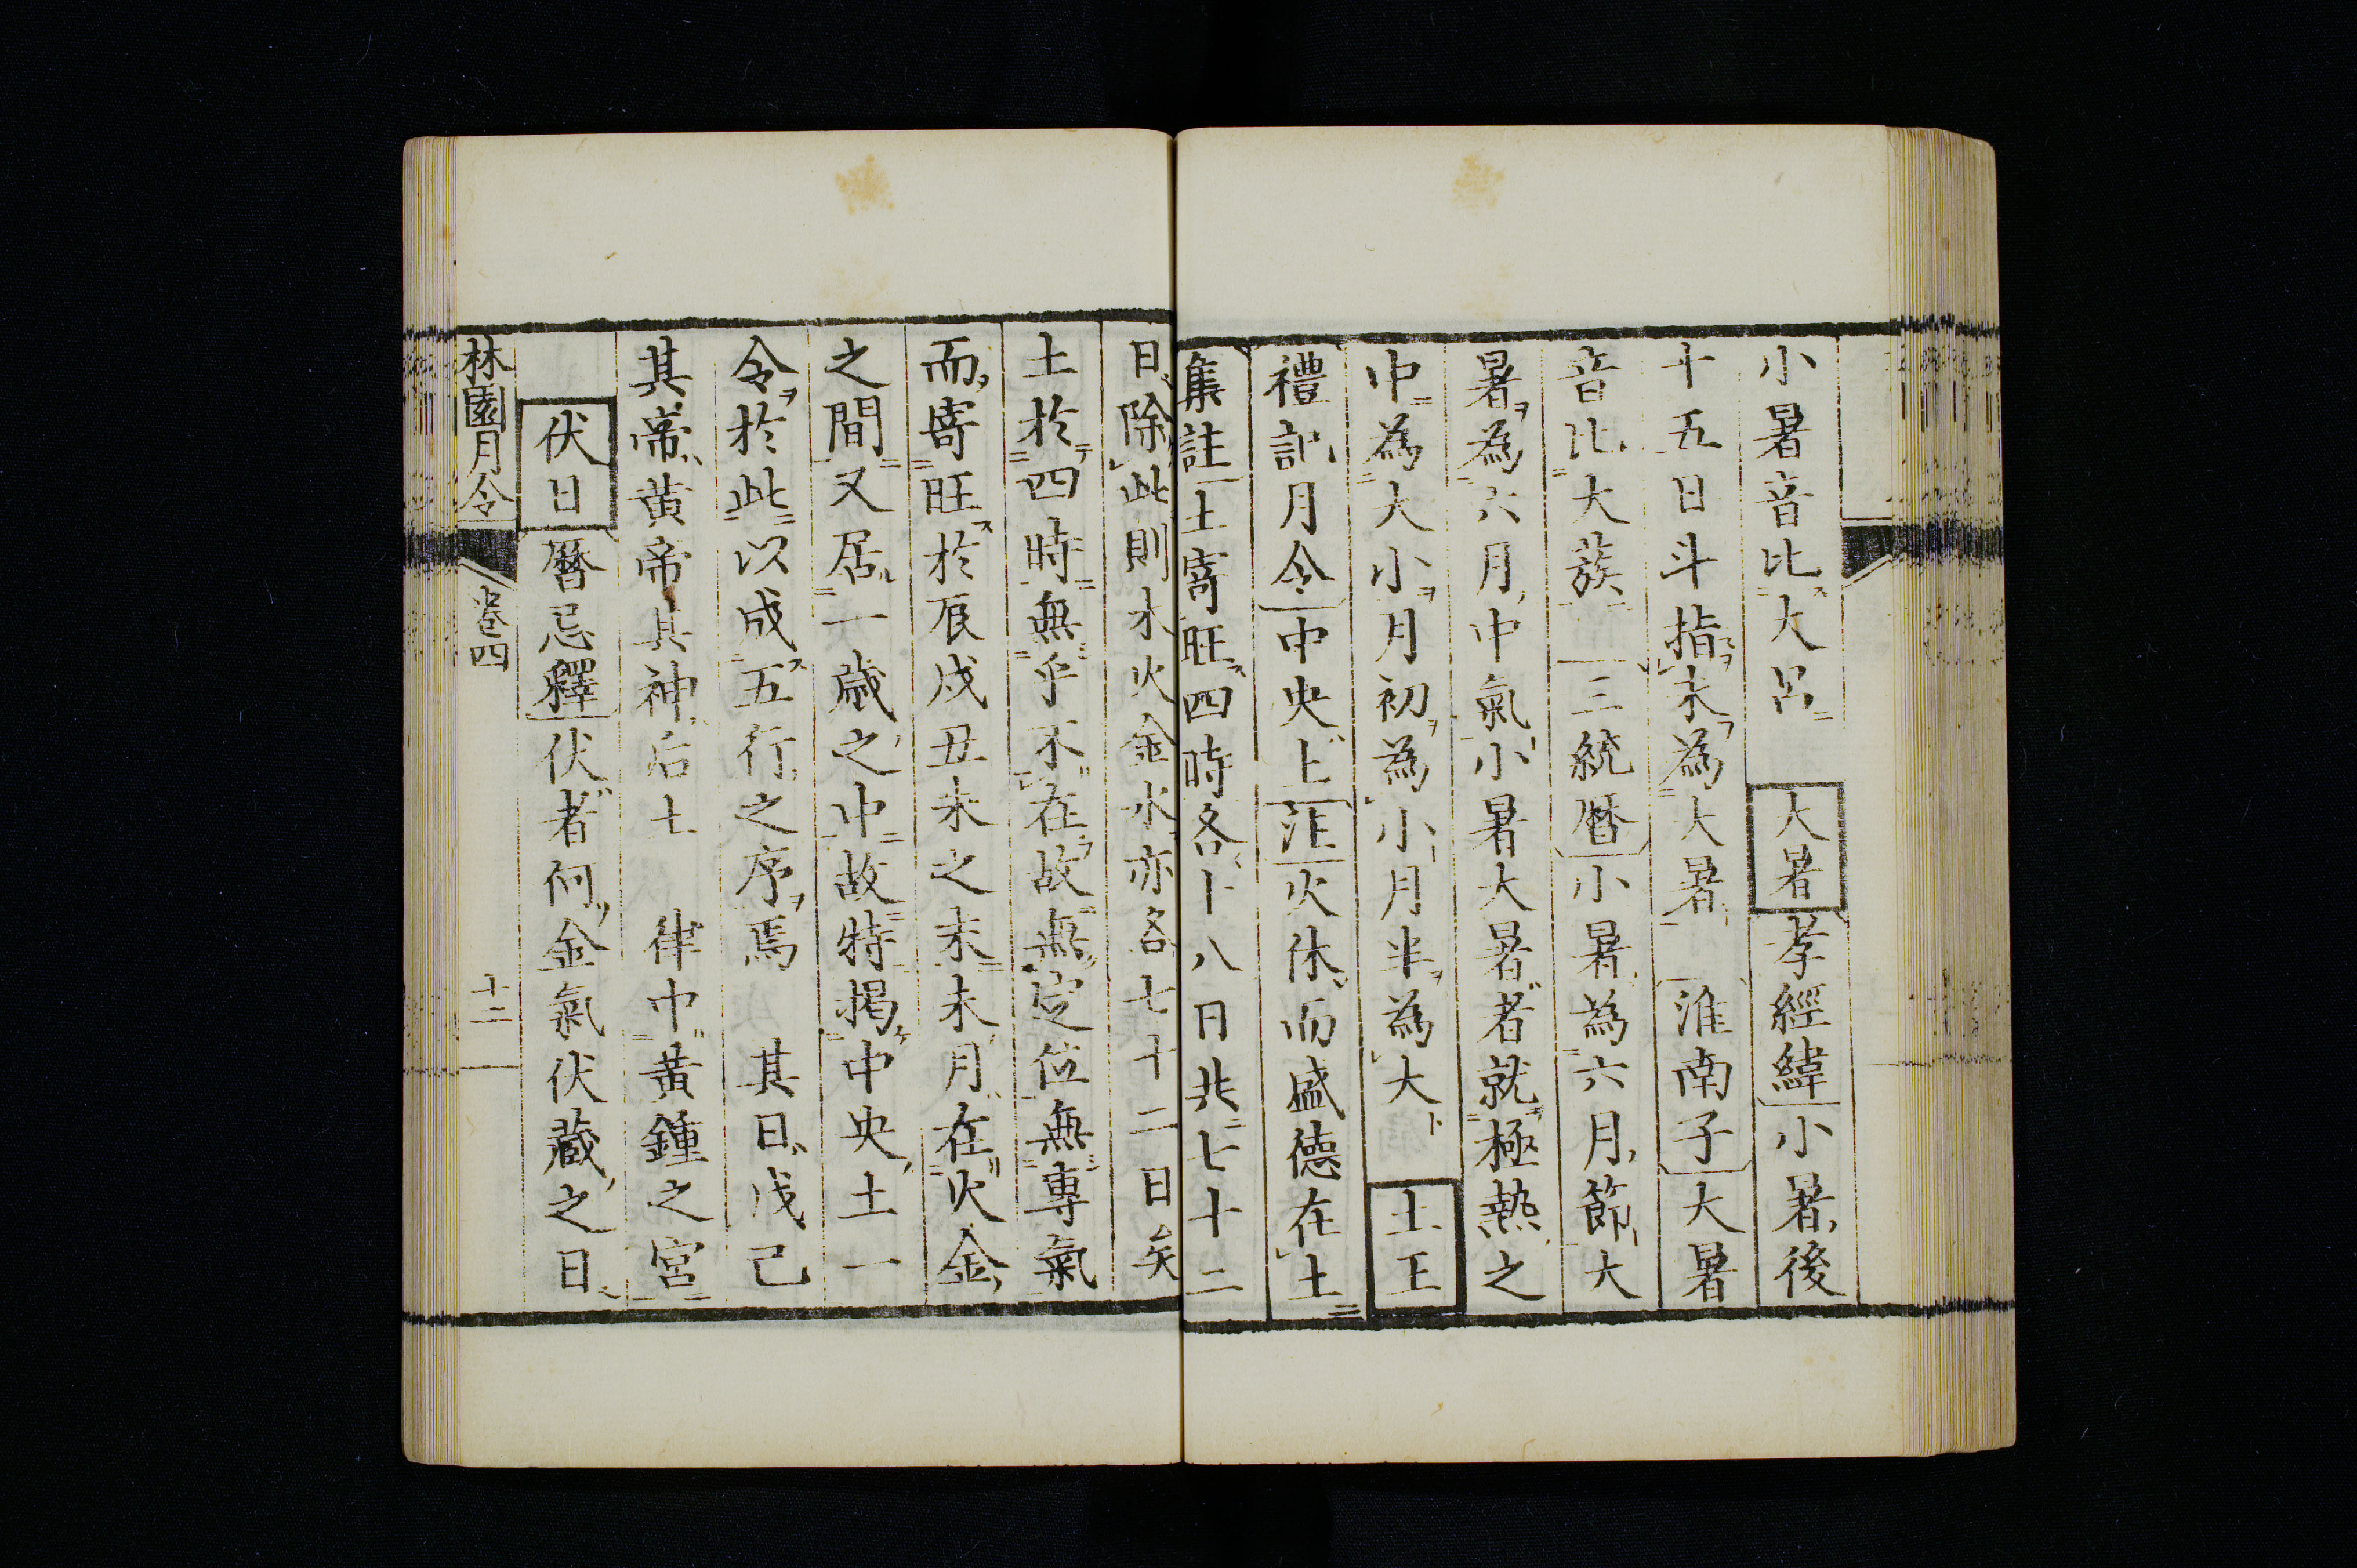 小暑音比大呂　大暑孝經緯小暑後
十五日斗指未為大暑　淮南子大暑
音比大蔟　三統暦小暑為六月節大
暑為六月中氣小暑大暑者就極熱之
中為大小月初為小月半為大　土王
禮記月令中央土注火休而盛德在土
集註土寄旺四時各十八日共七十二
日除此則木火金水亦各七十二日矣
土於四時無乎不在故無定位無專氣
而寄旺於辰戌丑未之末未月在火金
之間又居一歳之中故特揭中央土一
令於此以成五行之序焉　其日戊己
其帝黄帝其神后土　律中黄鍾之宮
伏日暦忌釋伏者何金氣伏藏之日
林園月令　卷四　十二